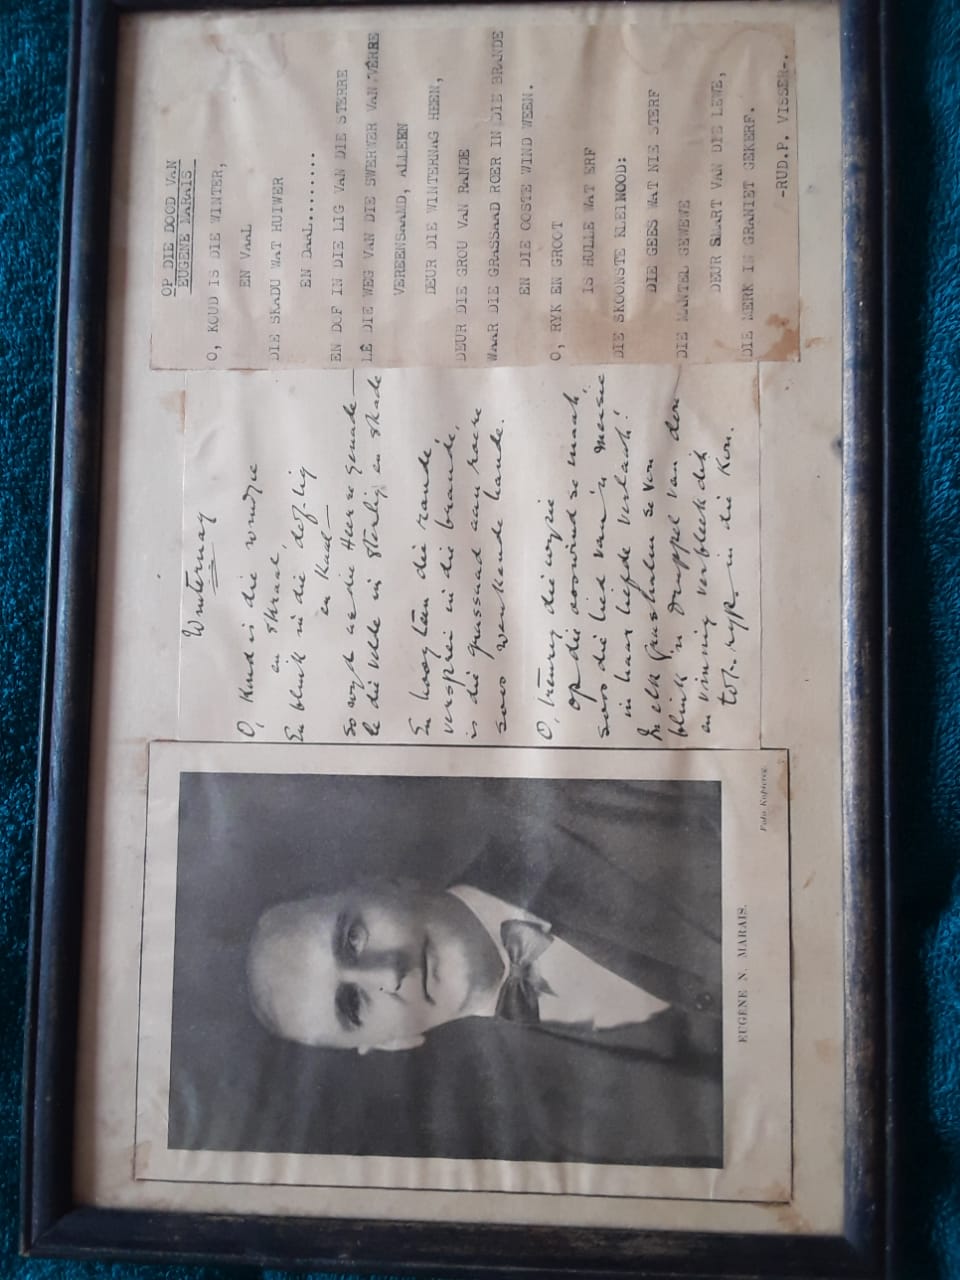 EUGÈNE N. MARAIS.
Foto Kopiereg.
Winternag
O, Koud is die windjie
en skraal,
En blink in die dof-lig
en Kaal—
So wyd as die Heer se genade—
le die velde in sterlig en skade
En hoog in die rande
versprei in die brande,
is die grassaad aan roere
soos wenkende hande.
O, treurig die wysie
op die ooswind se maat,
soos die lied van 'n meisie
in haar liefde verlaat!
In elk grashalm se vou
blink 'n druppel van dou—
en vinnig verbleek dit
tot ryp in die Kou.
OP DIE DOOD VAN
EUGENE MARAIS
O, KOUD IS DIE WINTER,
EN VAAL
DIE SKADU WAT HUIWER
EN DAAL.........
EN DOF IN DIE LIG VAN DIE STERRE
LÊ DIE WEG VAN DIE SWERWER VAN VÊRRE
VEREENSAAMD, ALLEEN
DEUR DIE WINTERNAG HEEN,
DEUR DIE GROU VAN RANDE
WAAR DIE GRASSAAD ROER IN DIE BRANDE
EN DIE OOSTE WIND WEEN.
O, RYK EN GROOT
IS HULLE WAT ERF
DIE SKOONSTE KLEINOOD:
DIE GEES WAT NIE STERF
DIE MANTEL GEWEWE
DEUR SMART VAN DIE LEWE,
DIE MERK IN GRANIET GEKERF.
-RUD.P. VISSER-.